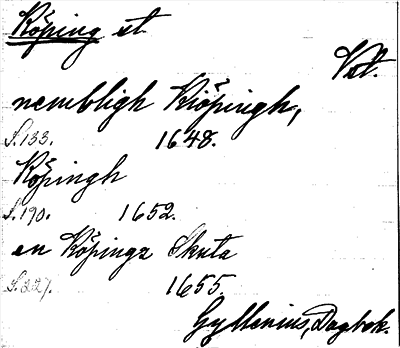 Köping st.
Vstm.
nembligh Kiöpingh,
S. 133. 1648.
Köpingh
S. 190. 1652.
en Köpings Skuta
S. 227. 1655.
Gyllenius, Dagbok.